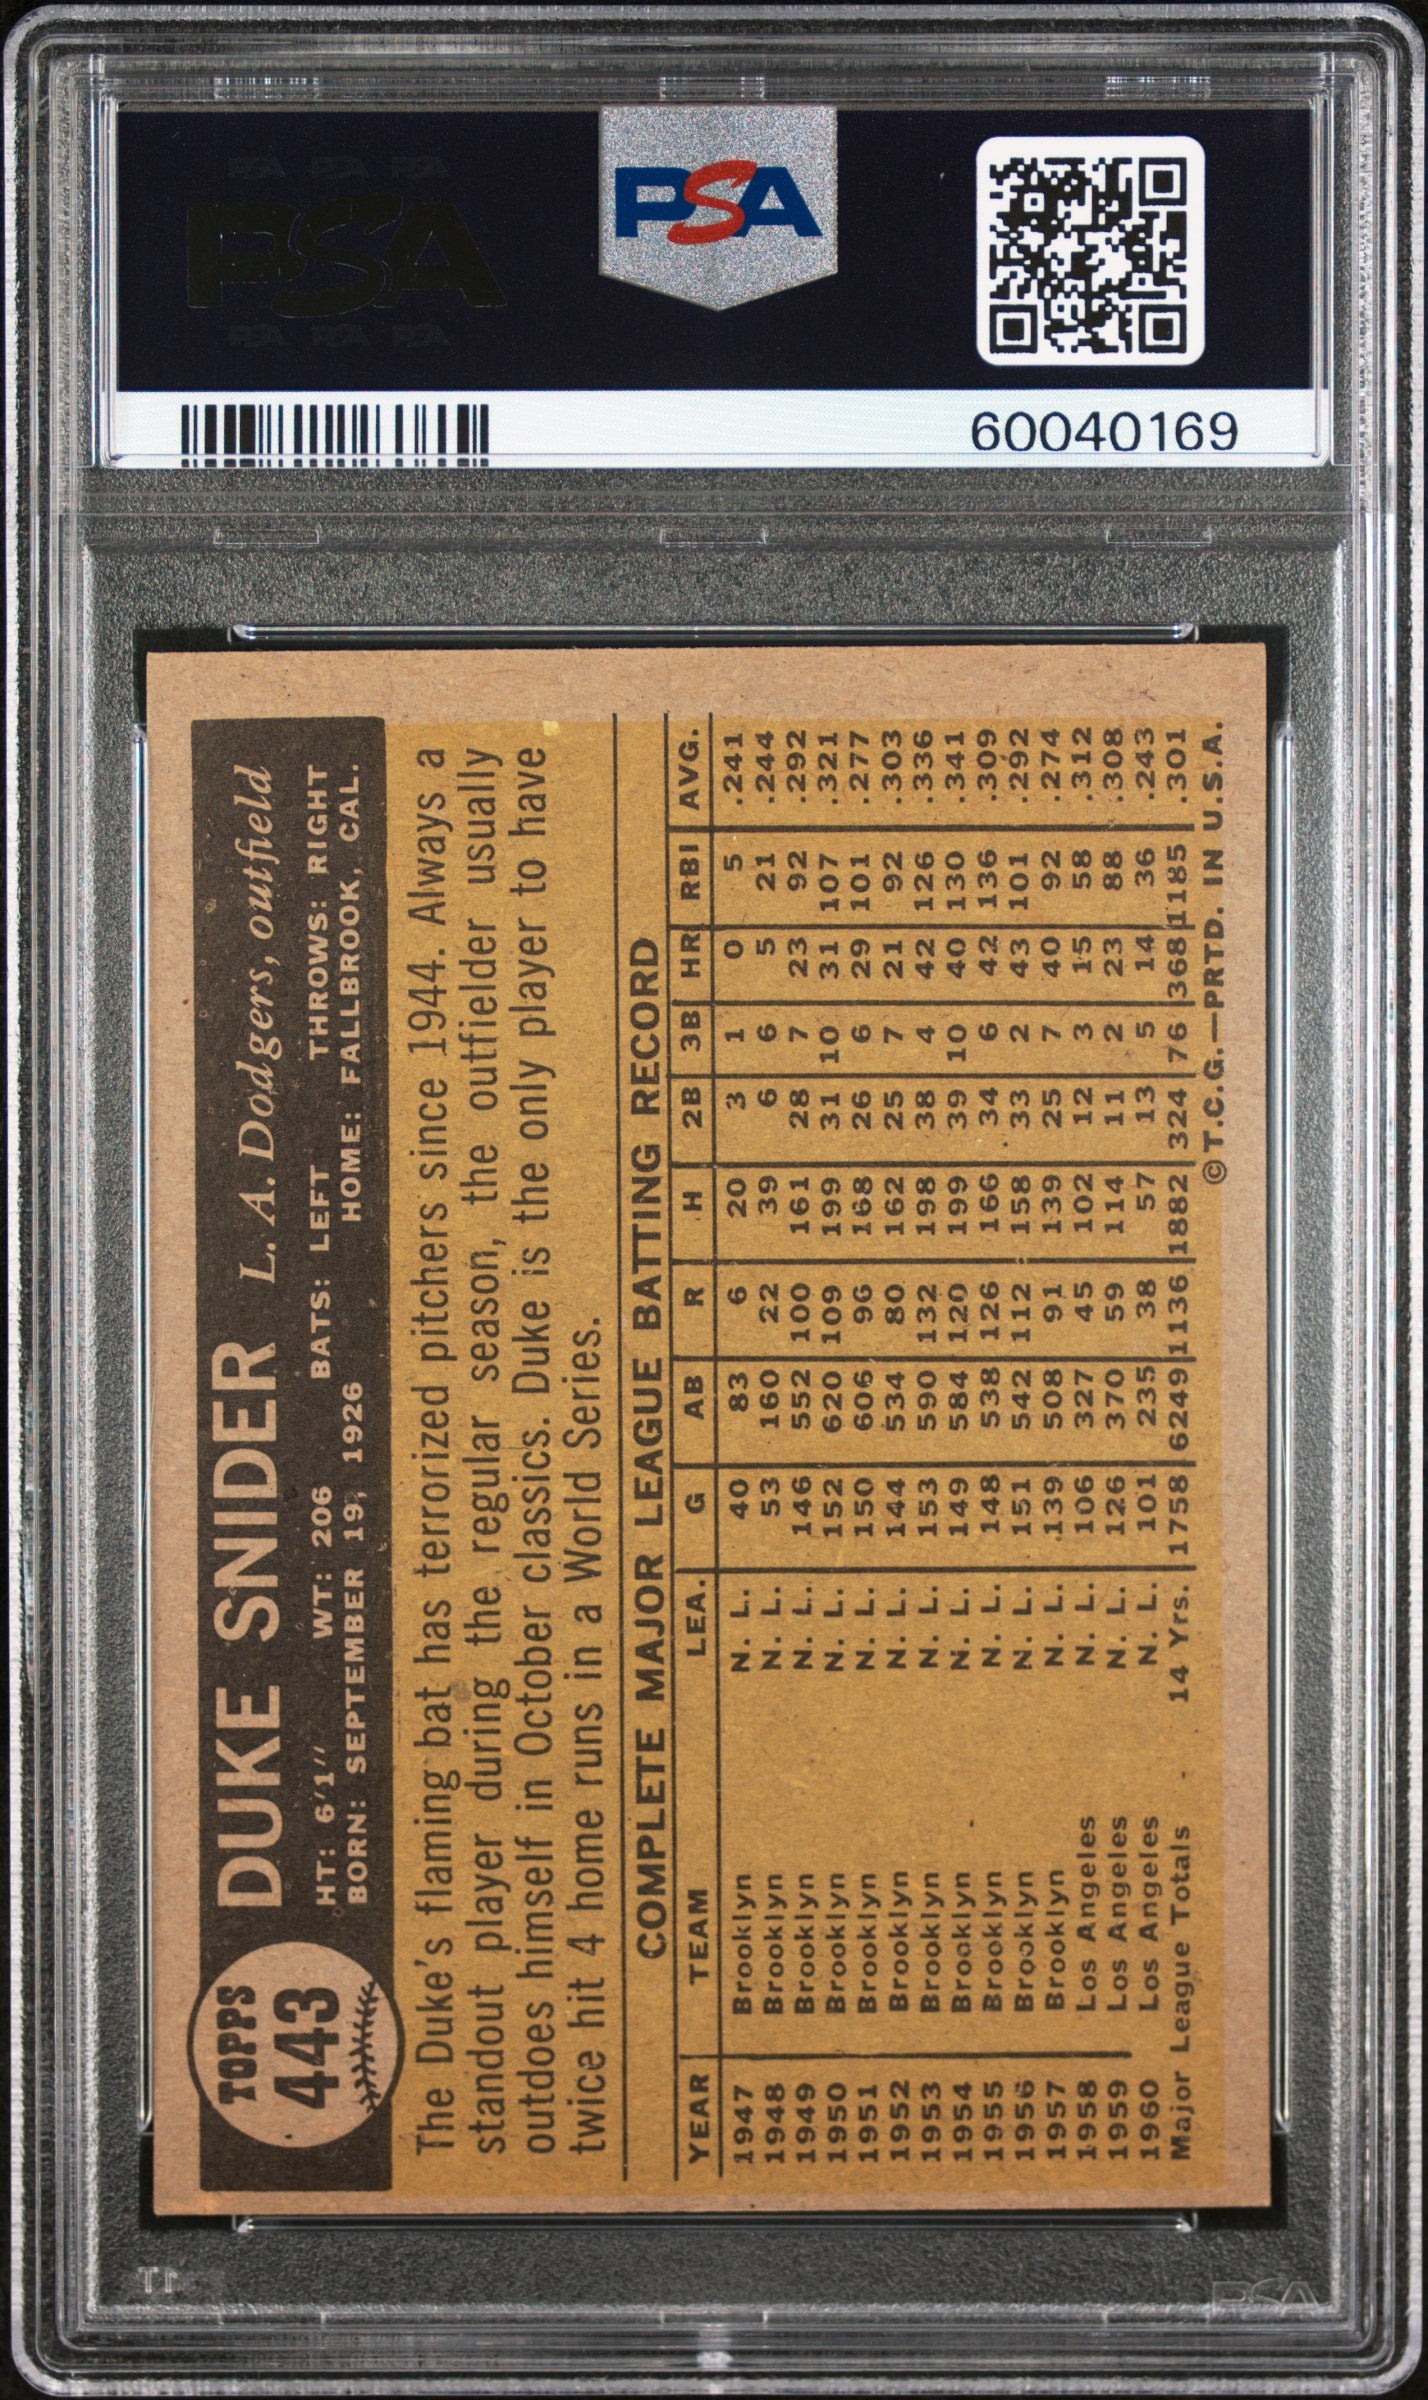 PSA PSA PSA
PSA
PSA PSA PSA
PSA
60040169
TOPPS
443
DUKE SNIDER L. A. Dodgers, outfield
HT: 6'1" WT: 206 BATS: LEFT THROWS: RIGHT
BORN: SEPTEMBER 19, 1926 HOME: FALLBROOK, CAL.
The Duke's flaming bat has terrorized pitchers since 1944. Always a
standout player during the regular season, the outfielder usually
outdoes himself in October classics. Duke is the only player to have
twice hit 4 home runs in a World Series.
COMPLETE MAJOR LEAGUE BATTING RECORD
YEAR TEAM LEA. G AB R H 2B 3B HR RBI AVG.
1947 Brooklyn N. L. 40 83 6 20 3 1 0 5 .241
1948 Brooklyn N. L. 53 160 22 39 6 6 5 21 .244
1949 Brooklyn N. L. 146 552 100 161 28 7 23 92 .292
1950 Brooklyn N. L. 152 620 109 199 31 10 31 107 .321
1951 Brooklyn N. L. 150 606 96 168 26 6 29 101 .277
1952 Brooklyn N. L. 144 534 80 162 25 7 21 92 .303
1953 Brooklyn N. L. 153 590 132 198 38 4 42 126 .336
1954 Brooklyn N. L. 149 584 120 199 39 10 40 130 .341
1955 Brooklyn N. L. 148 538 126 166 34 6 42 136 .309
1956 Brooklyn N. L. 151 542 112 158 33 2 43 101 .292
1957 Brooklyn N. L. 139 508 91 139 25 7 40 92 .274
1958 Los Angeles N. L. 106 327 45 102 12 3 15 58 .312
1959 Los Angeles N. L. 126 370 59 114 11 2 23 88 .308
1960 Los Angeles N. L. 101 235 38 57 13 5 14 36 .243
Major League Totals 14 Yrs. 1758 6249 1136 1882 324 76 368 1185 .301
©T.C.G.—PRTD. IN U.S.A.
PSA